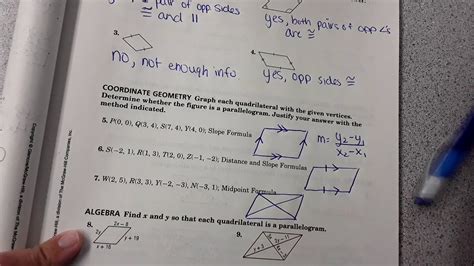 pair of opp sides
≅ and ||
yes, both pairs of opp ∠s
are ≅
3.
no, not enough info.
4.
yes, opp sides ≅
COORDINATE GEOMETRY Graph each quadrilateral with the given vertices.
Determine whether the figure is a parallelogram. Justify your answer with the
method indicated.
5. P(0, 0), Q(3, 4), S(7, 4), Y(4, 0); Slope Formula
m = y₂-y₁
x₂-x₁
6. S(−2, 1), R(1, 3), T(2, 0), Z(−1, −2); Distance and Slope Formulas
7. W(2, 5), R(3, 3), Y(−2, −3), N(−3, 1); Midpoint Formula
ALGEBRA Find x and y so that each quadrilateral is a parallelogram.
8.
2x − 8
2y
y + 19
x + 18
9.
2x − 11
y + 3